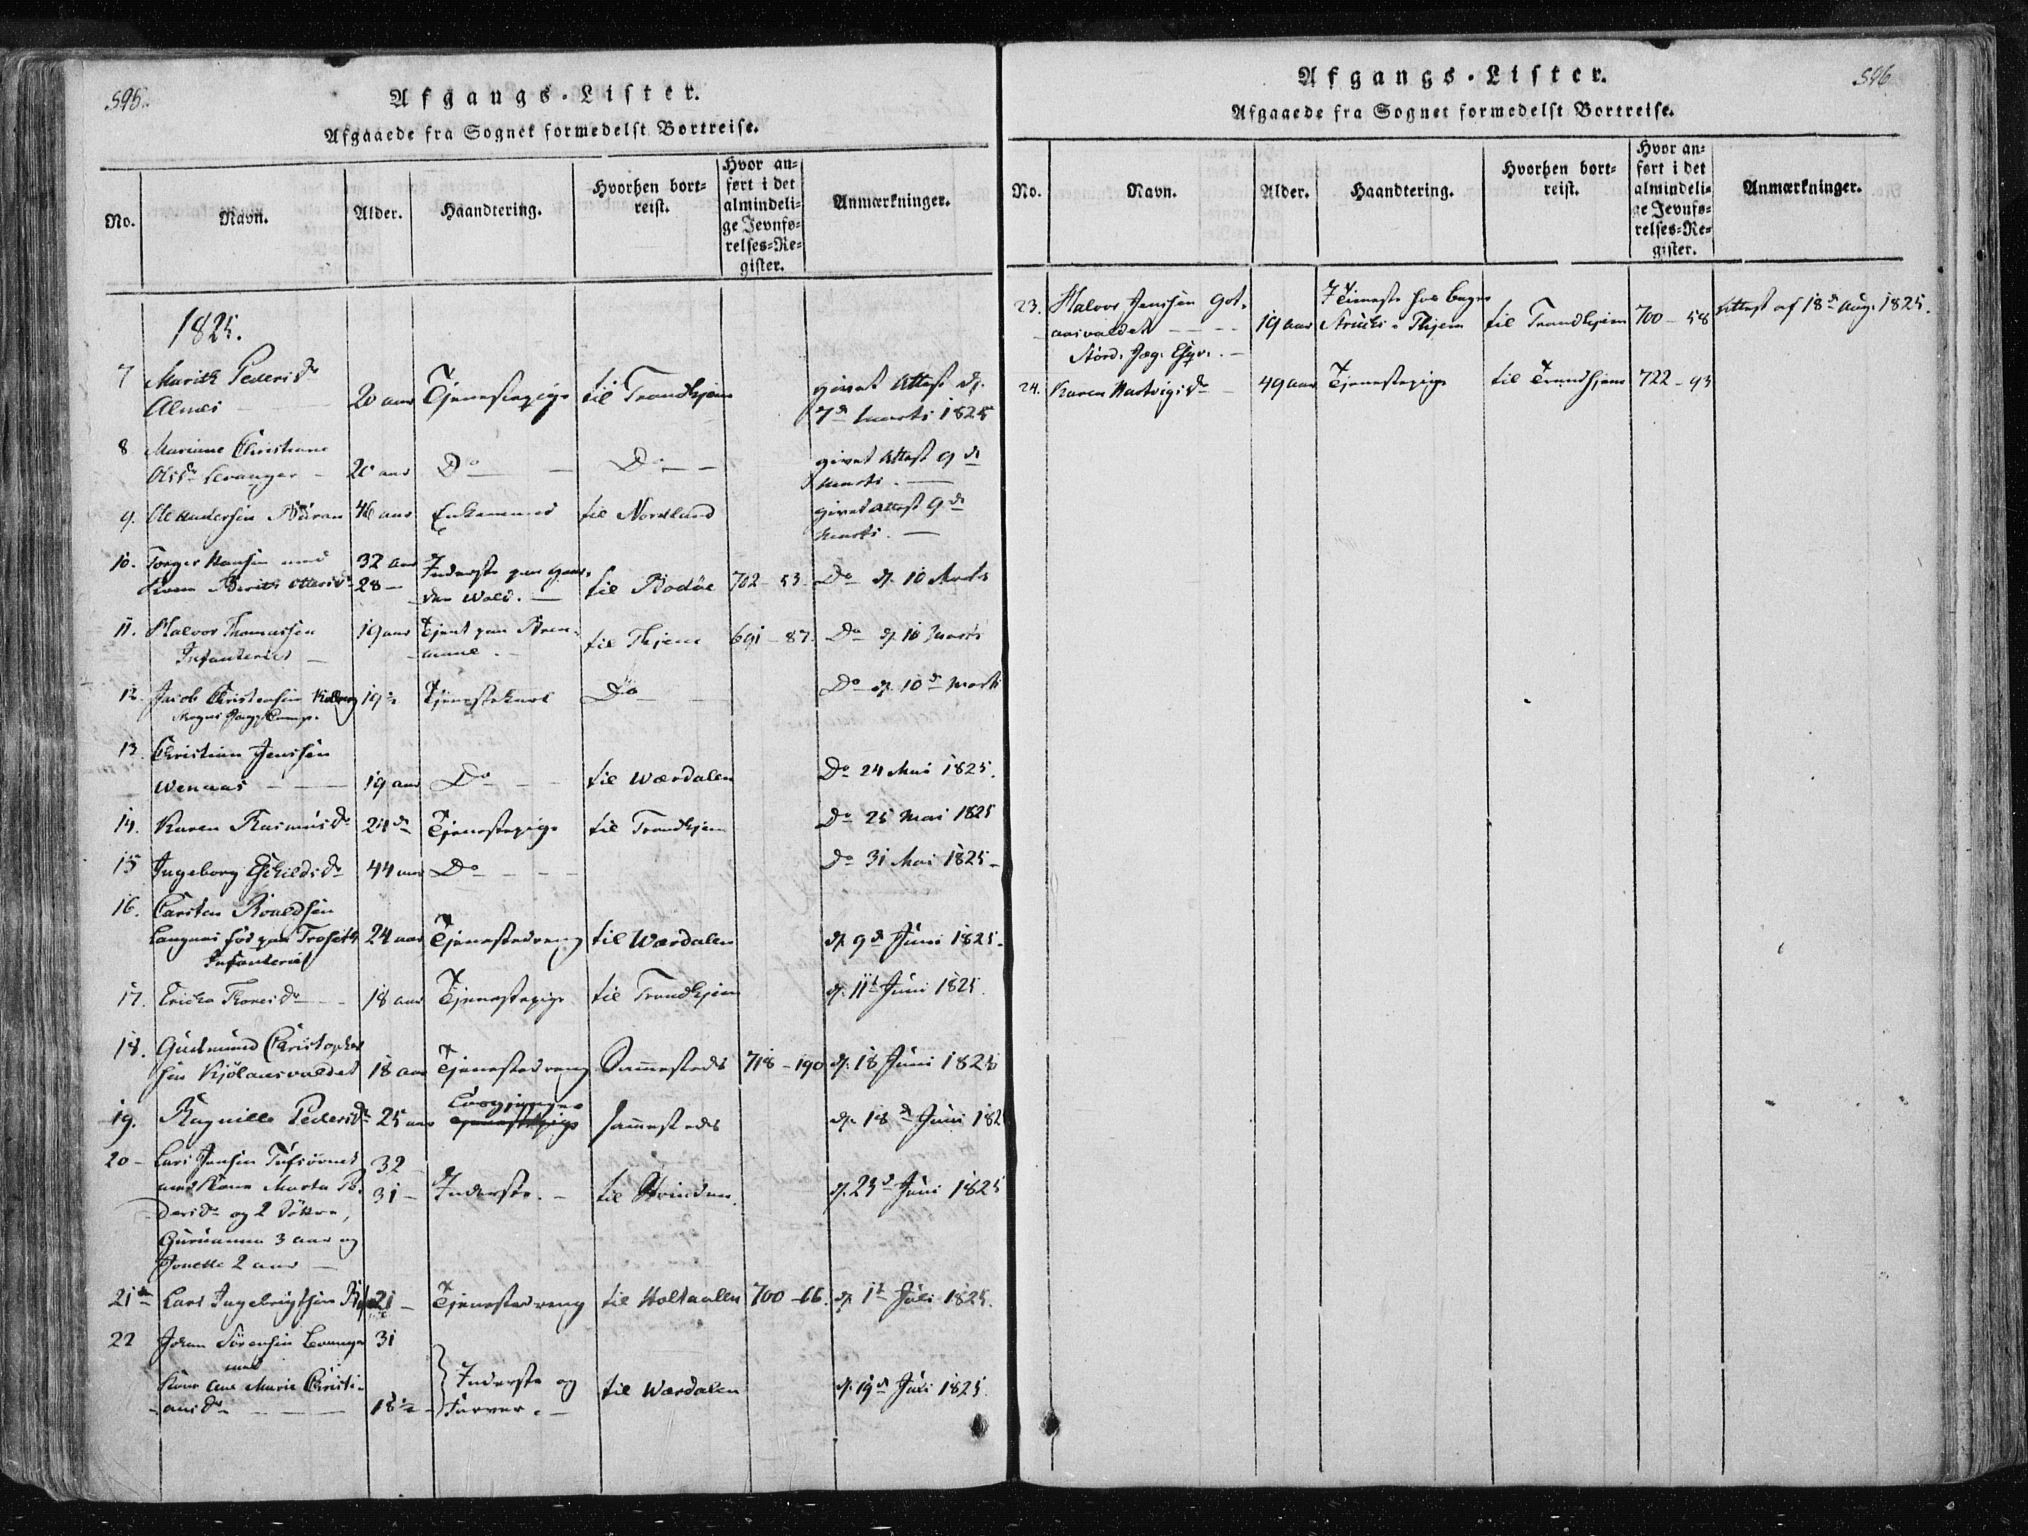 595.
Afgangs-Lister.
Afgaaede fra Sognet formedelst Bortreise.
No.
Navn.
Alder.
Haandtering.
Hvorhen bort=
reist.
Hvor an=
ført i det
almindeli=
ge Jevnfø=
relses=Re=
gister.
Anmærkninger.
1825.
7 Marith Pedersdr
Alnes 20 aar Tjenestepige til Trondhjem givet Attest d.
7de Marts 1825
8 Marianne Christiane
Olsdr Levanger 20 aar Do Do givet Attest 9de
Marts.
9. Ole Andersen 46 aar Enkemand til Nordland givet Attest 9de
Marts.
10. Torger Hansen med 32 aar Inderste paa
Kone Berith Ottersdr 28 Wold. til Bodøe 702 - 53. Do d. 10 Marts
11. Halvor Thomassen 19 aar Tjent paa
Infanterist til Thjem 691 - 87. Do d. 10 Marts
12. Jacob Christensen 19 Tjenestekarl Do Do d. 10de Marts
13. Christian Jenssen
Wennes 19 aar Do til Wærdalen Do 24 Mai 1825.
14. Karen Rasmusdr 24 do Tjenestepige til Trondhjem Do 25 Mai 1825
15 Ingeborg Eskildsdr 44 aar Do Do 31 Mai 1825
16. Carsten Roaldsen
Langnes fød paa 24 aar Tjenestedreng til Wærdalen d. 9de Juni 1825.
Infanterist
17. Ericha Thoresdr 18 aar Tjenestepige til Trondhjem d. 11te Juni 1825.
18. Gudmund Christopher
sen Kjølaasvaldet 18 aar Tjenestedreng Sammesteds 718 - 190 d. 18 Juni 1825
19. Ragnille Pedersdr 25 aar sammesteds d. 18de Juni 182
20 Lars Jensen 32
med Kone Marta Pe= 31 Inderste. til Strinden. d. 23de Juni 1825
dersdr og 2 Døttre,
Gurianna 3 aar og
Jonette 2 aar
21de Lars Ingebrigtsen 21 Tjenestedreng til Holtaalen 700 - 66. d. 1te Juli 1825.
22 Johan Sørensen Levanger 31
med
Kone Ane Marie Christi= Inderste og til Wærdalen d. 19de Juli 1825.
ansdr 18½ Farver.
596
Afgangs-Lister.
Afgaaede fra Sognet formedelst Bortreise.
No.
Navn.
Alder.
Haandtering.
Hvorhen bort=
reist.
Hvor an=
ført i det
almindeli=
ge Jevnfø=
relses=Re=
gister.
Anmærkninger.
23. Halvor Jenssen Got=
aasvaldet 19 aar i Thjem til Trondhjem 700 - 58 Attest af 18de Aug. 1825.
24. Karen Hartvigsdr 49 aar Tjenestepige til Trondhjem 722 - 93